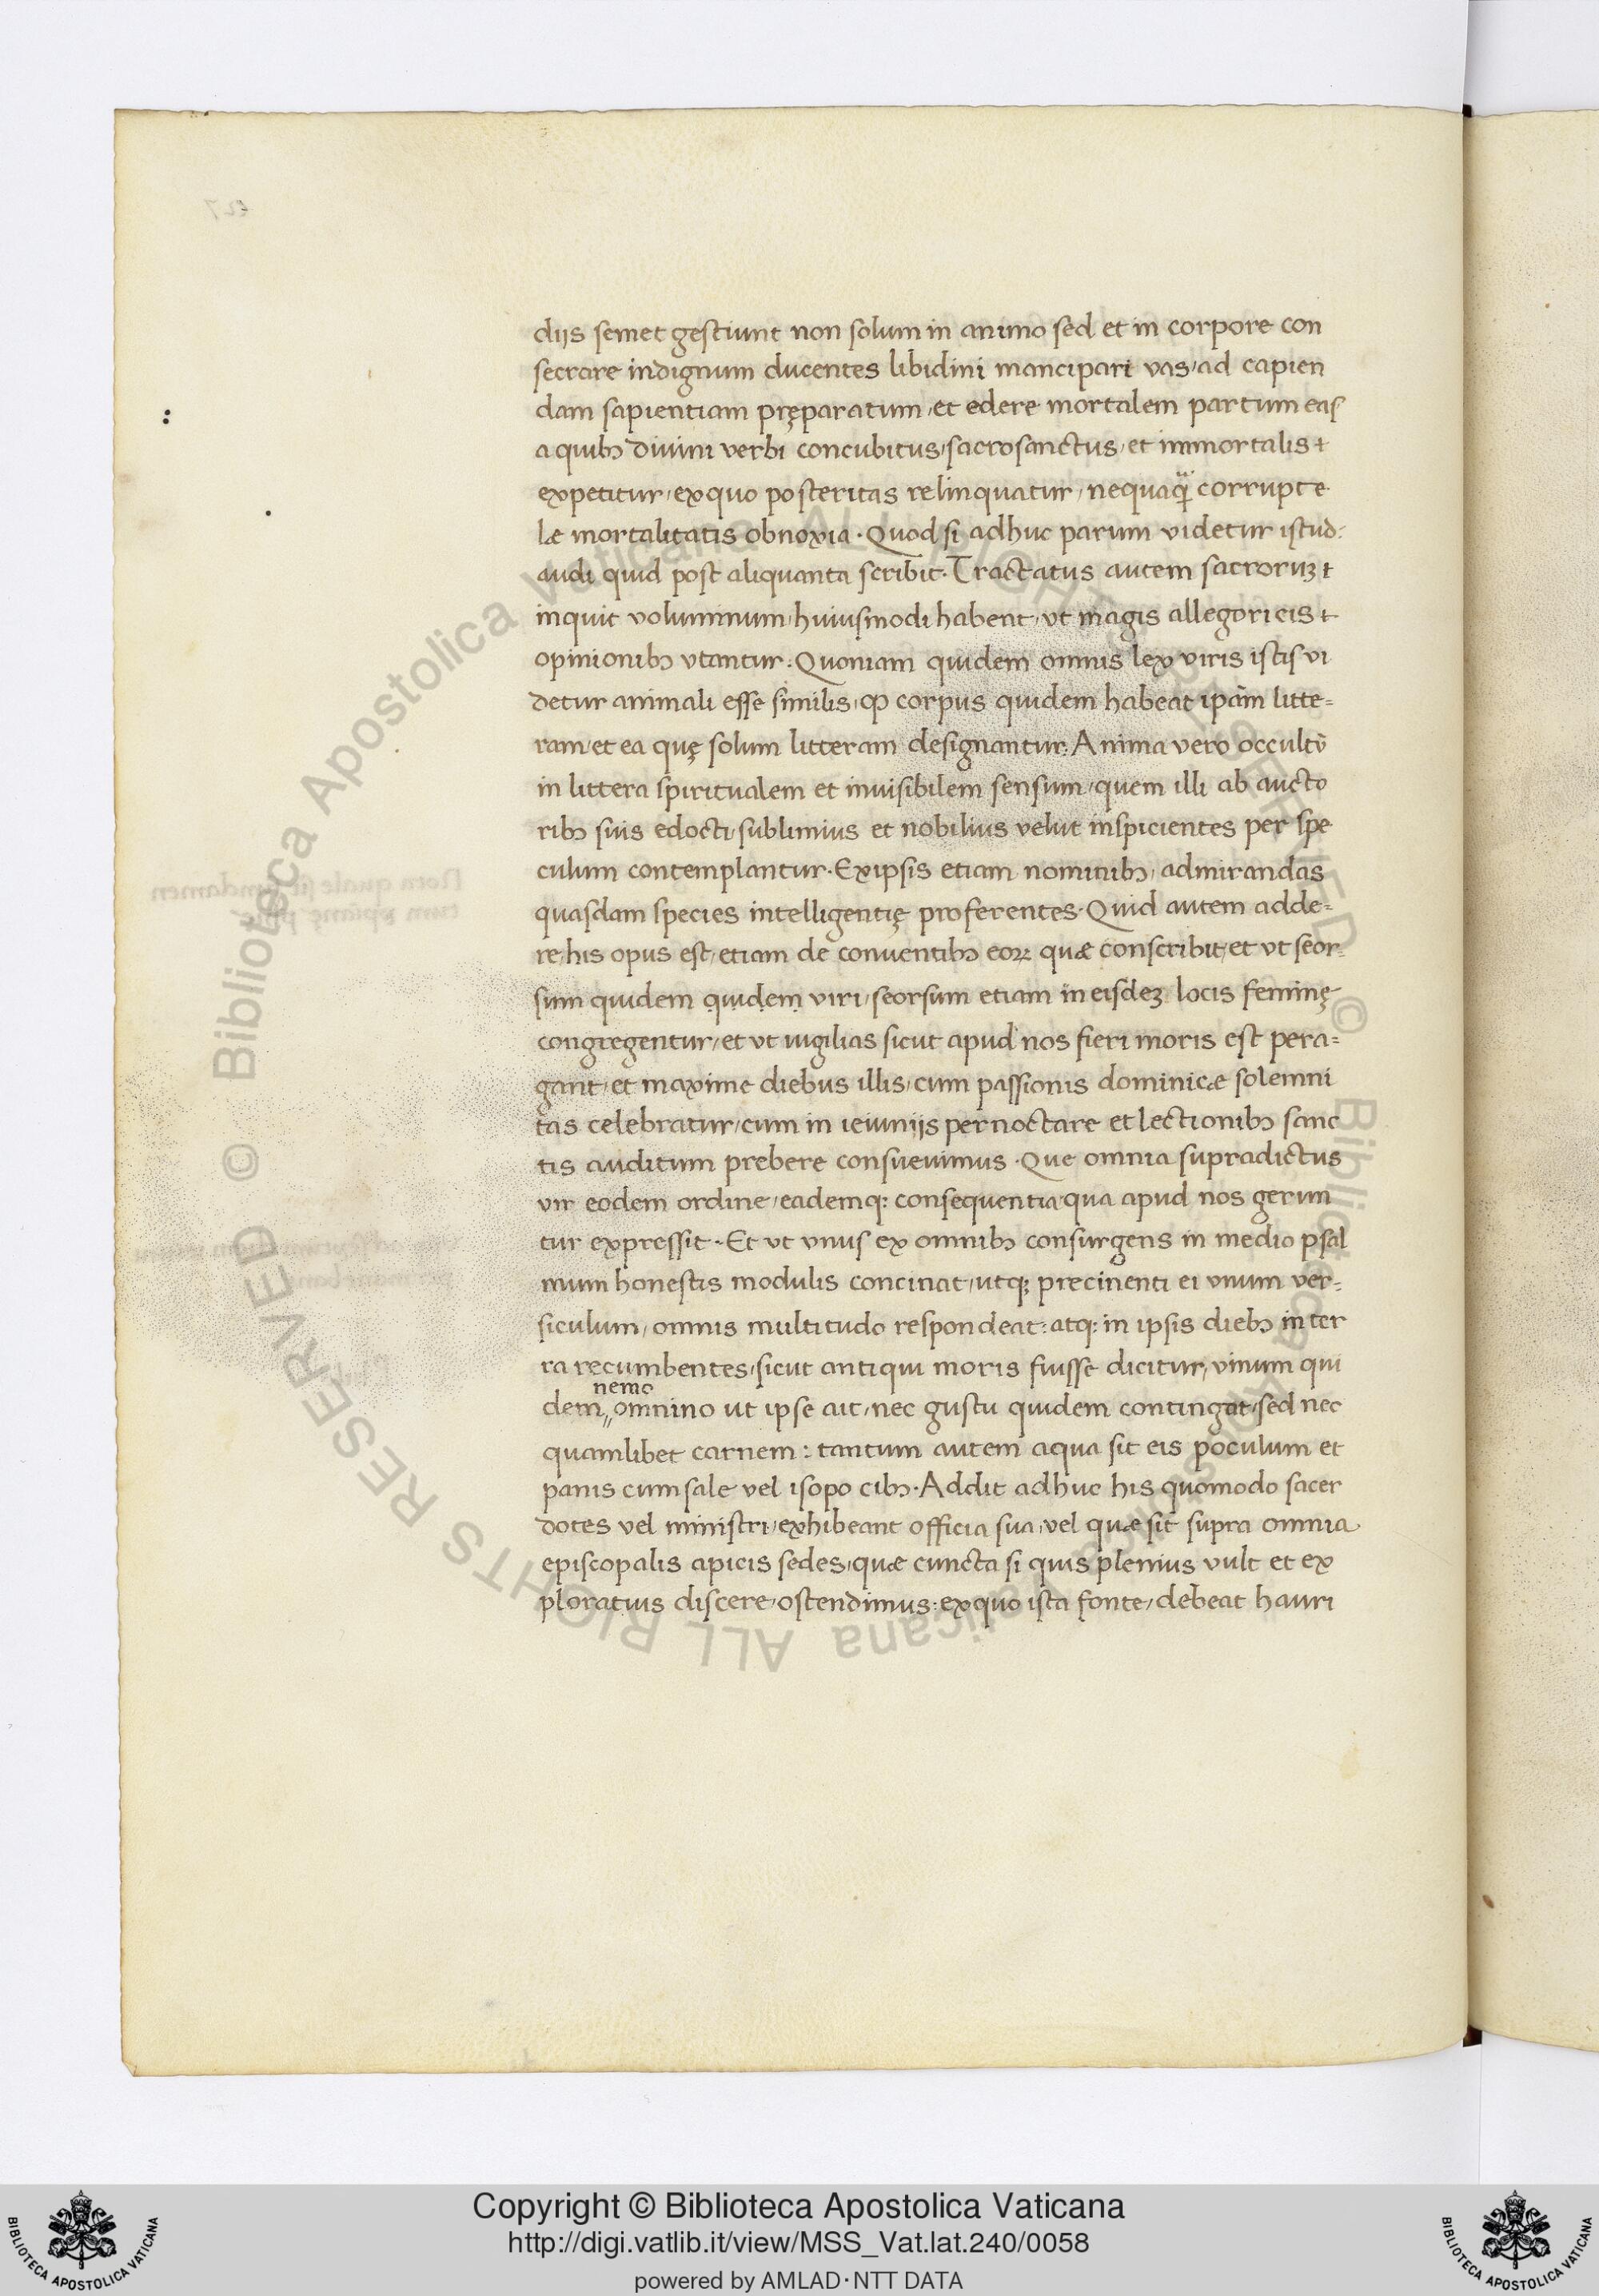 diis semet gestiunt non solum in animo sed et in corpore con
secrare indignum ducentes libidini mancipari vas, ad capien
dam sapientiam pręparatum, et edere mortalem partum eas
a quibꝫ divini verbi concubitus, sacrosanctus, et immortalis
expetitur, ex quo posteritas relinquatur, nequaq̃ corrupte
læ mortalitatis obnoxia. Quod si adhuc parum videtur istud:
audi quid post aliquanta scribit. Tractatus autem sacroruꝫ
inquit voluminum, huiusmodi habent, ut magis allegoricis
opinionibꝫ utantur. Quoniam quidem omnis lex viris istis vi
detur animali esse similis, ꝙ corpus quidem habeat ipãm litte=
ram, et ea quę solum litteram designantur. Anima vero occultũ
in littera spiritualem et invisibilem sensum, quem illi ab aucto
ribꝫ suis edocti, sublimius et nobilius velut inspicientes per spe
culum contemplantur. Ex ipsis etiam nominibꝫ, admirandas
quasdam species intelligentię proferentes. Quid autem adde=
re, his opus est, etiam de conventibꝫ eoꝝ quæ conscribit, et ut seor=
sum quidem quidem viri, seorsum etiam in eisdeꝫ locis feminę
congregentur, et ut vigilias sicut apud nos fieri moris est pera=
gant, et maxime diebus illis, cum passionis dominicæ solemni
tas celebratur, cum in ieiuniis pernoctare et lectionibꝫ sanc
tis auditum prebere consuevimus. Que omnia supradictus
vir eodem ordine, eademqꝫ consequentia qua apud nos gerun
tur expressit. Et ut unus ex omnibꝫ consurgens in medio psal
mum honestis modulis concinat, utqꝫ precinenti ei unum ver=
siculum, omnis multitudo respondeat: atqꝫ in ipsis diebꝫ in ter
ra recumbentes, sicut antiqui moris fuisse dicitur, vinum qui
nemo
dem,, omnino ut ipse ait, nec gustu quidem contingat, sed nec
quamlibet carnem: tantum autem aqua sit eis poculum et
panis cum sale vel isopo cibꝫ. Addit adhuc his quomodo sacer
dotes vel ministri, exhibeant officia sua, vel quæ sit supra omnia
episcopalis apicis sedes, quæ cuncta si quis plenius vult et ex
ploratius discere, ostendimus: ex quo ista fonte, debeat hauri
© Biblioteca Apostolica Vaticana ALL RIGHTS RESERVED
© Biblioteca Apostolica Vaticana ALL RIGHTS RESERVED
Copyright © Biblioteca Apostolica Vaticana
http://digi.vatlib.it/view/MSS_Vat.lat.240/0058
powered by AMLAD·NTT DATA
BIBLIOTECA APOSTOLICA VATICANA
BIBLIOTECA APOSTOLICA VATICANA